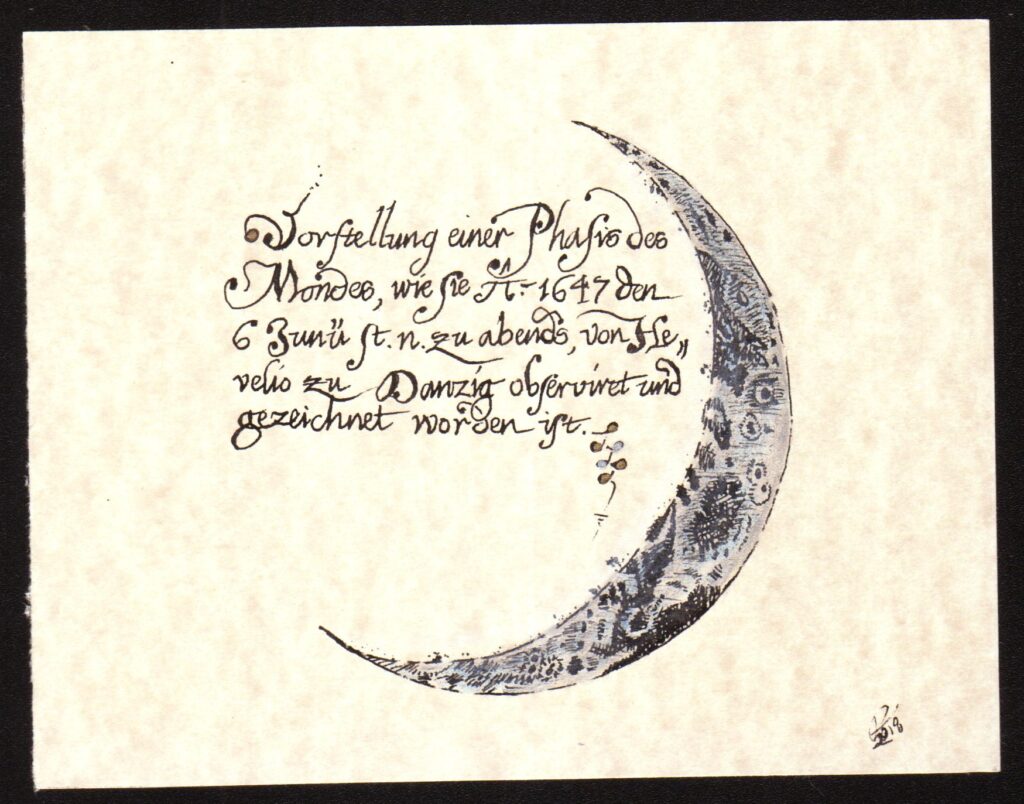 Vorstellung einer Phasis des
Mondes, wie sie A.- 1647 den
6 Junÿ st. n. zu abends, von He„
velio zu Danzig observiret und
gezeichnet worden ist.